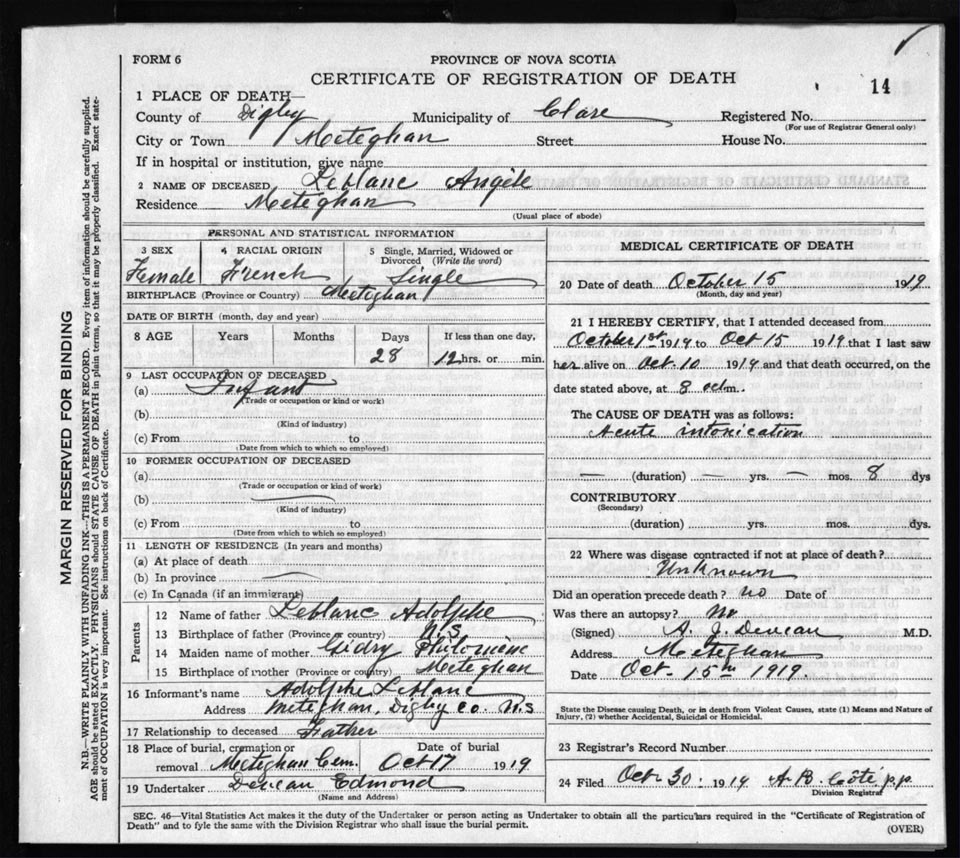 FORM 6
PROVINCE OF NOVA SCOTIA
CERTIFICATE OF REGISTRATION OF DEATH
14
1 PLACE OF DEATH—
County of Digby Municipality of Clare Registered No.
(For use of Registrar General only)
City or Town Meteghan Street House No.
If in hospital or institution, give name
2 NAME OF DECEASED Leblanc Angèle
Residence Meteghan
(Usual place of abode)
PERSONAL AND STATISTICAL INFORMATION
3 SEX 4 RACIAL ORIGIN 5 Single, Married, Widowed or Divorced (Write the word)
Female French Single
BIRTHPLACE (Province or Country) Meteghan
DATE OF BIRTH (month, day and year)
8 AGE Years Months Days If less than one day,
28 12 hrs. or min.
9 LAST OCCUPATION OF DECEASED
(a) Infant
(Trade or occupation or kind or work)
(b)
(Kind of industry)
(c) From to
(Date from which to which so employed)
10 FORMER OCCUPATION OF DECEASED
(a)
(Trade or occupation or kind of work)
(b)
(Kind of industry)
(c) From to
(Date from which to which so employed)
11 LENGTH OF RESIDENCE (In years and months)
(a) At place of death
(b) In province
(c) In Canada (if an immigrant)
Parents
12 Name of father Leblanc Adolphe
13 Birthplace of father (Province or country) N.S
14 Maiden name of mother Gidry Philomène
15 Birthplace of mother (Province or country) Meteghan
16 Informant's name Adolphe Leblanc
Address Meteghan, Digby Co. N.S
17 Relationship to deceased Father
18 Place of burial, cremation or Date of burial
removal Meteghan Cem. Oct 17 1919
19 Undertaker Deveau Edmond
(Name and Address)
MEDICAL CERTIFICATE OF DEATH
20 Date of death October 15 1919
(Month, day and year)
21 I HEREBY CERTIFY, that I attended deceased from
October 1st 1919 to Oct 15 1919 that I last saw
her alive on Oct. 10 1919 and that death occurred, on the
date stated above, at 8 m.
The CAUSE OF DEATH was as follows:
Acute intoxication
— (duration) — yrs. — mos. 8 dys
CONTRIBUTORY
(Secondary)
(duration) yrs. mos. dys.
22 Where was disease contracted if not at place of death?
Unknown
Did an operation precede death? No Date of
Was there an autopsy? No
(Signed) A. J. Deveau M.D.
Address Meteghan
Date Oct. 15th 1919.
State the Disease causing Death, or in death from Violent Causes, state (1) Means and Nature of
Injury, (2) whether Accidental, Suicidal or Homicidal.
23 Registrar's Record Number
24 Filed Oct. 30. 1919 A. B. Côté p.p.
Division Registrar
SEC. 46—Vital Statistics Act makes it the duty of the Undertaker or person acting as Undertaker to obtain all the particulars required in the "Certificate of Registration of
Death" and to fyle the same with the Division Registrar who shall issue the burial permit.
(OVER)
MARGIN RESERVED FOR BINDING
N.B.—WRITE PLAINLY WITH UNFADING INK—THIS IS A PERMANENT RECORD. Every item of information should be carefully supplied.
AGE should be stated EXACTLY. PHYSICIANS should STATE CAUSE OF DEATH in plain terms, so that it may be properly classified. Exact state-
ment of OCCUPATION is very important. See instructions on back of Certificate.